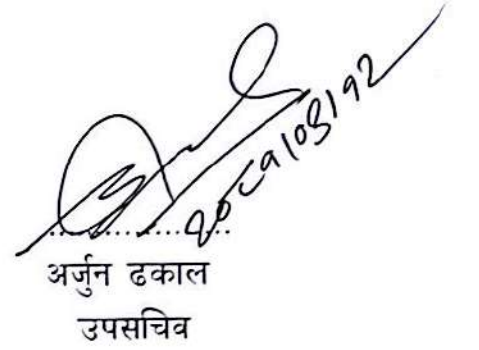 २०८१।०३।१२
..................
अर्जुन ढकाल
उपसचिव